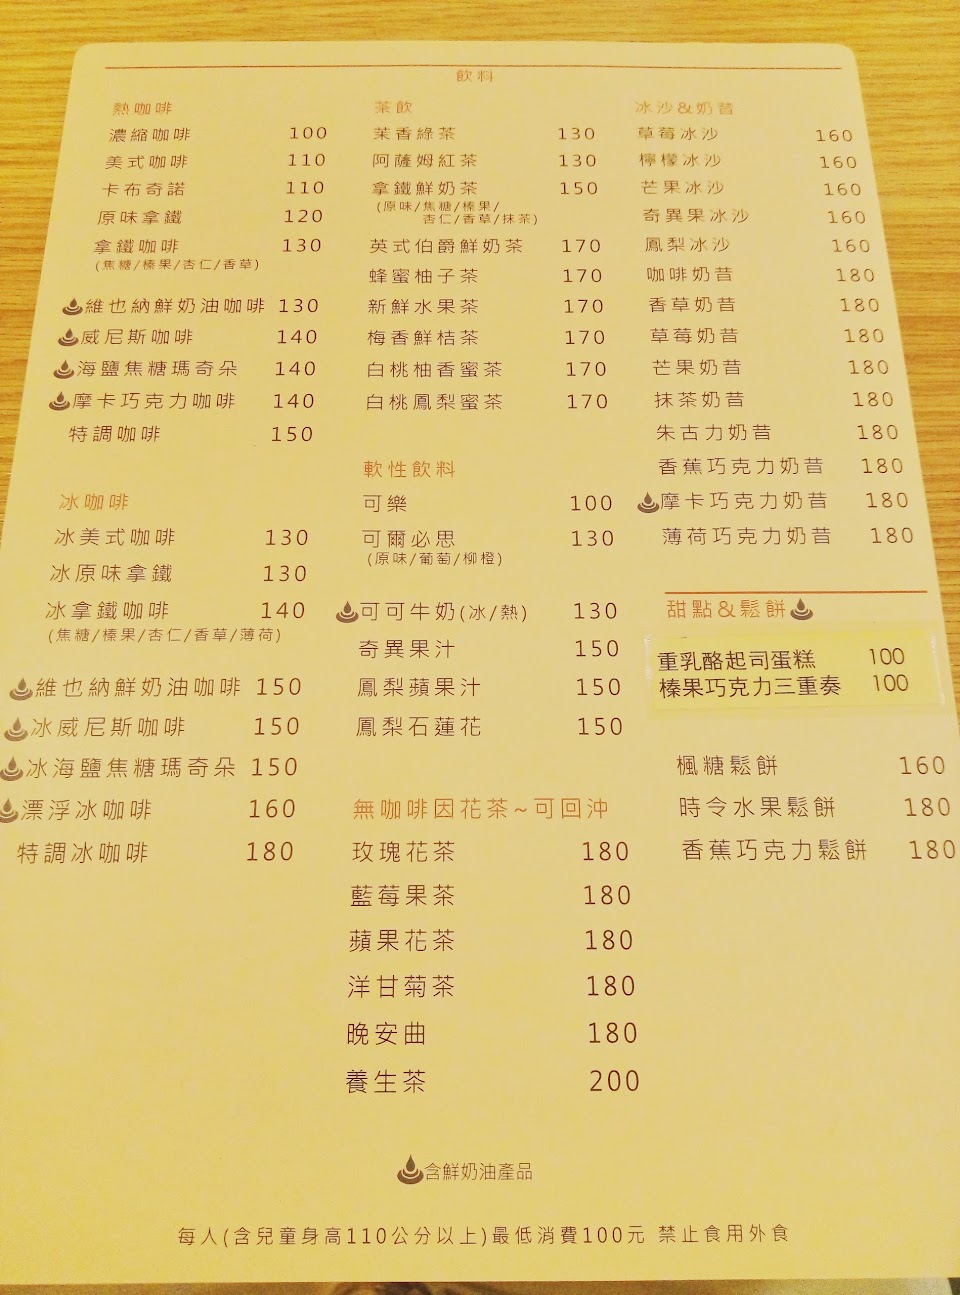 飲料
熱咖啡
濃縮咖啡 100
美式咖啡 110
卡布奇諾 110
原味拿鐵 120
拿鐵咖啡 130
(焦糖/榛果/杏仁/香草)
維也納鮮奶油咖啡 130
威尼斯咖啡 140
海鹽焦糖瑪奇朵 140
摩卡巧克力咖啡 140
特調咖啡 150
冰咖啡
冰美式咖啡 130
冰原味拿鐵 130
冰拿鐵咖啡 140
(焦糖/榛果/杏仁/香草/薄荷)
維也納鮮奶油咖啡 150
冰威尼斯咖啡 150
冰海鹽焦糖瑪奇朵 150
漂浮冰咖啡 160
特調冰咖啡 180
茶飲
茉香綠茶 130
阿薩姆紅茶 130
拿鐵鮮奶茶 150
(原味/焦糖/榛果/
杏仁/香草/抹茶)
英式伯爵鮮奶茶 170
蜂蜜柚子茶 170
新鮮水果茶 170
梅香鮮桔茶 170
白桃柚香蜜茶 170
白桃鳳梨蜜茶 170
軟性飲料
可樂 100
可爾必思 130
(原味/葡萄/柳橙)
可可牛奶(冰/熱) 130
奇異果汁 150
鳳梨蘋果汁 150
鳳梨石蓮花 150
無咖啡因花茶~可回沖
玫瑰花茶 180
藍莓果茶 180
蘋果花茶 180
洋甘菊茶 180
晚安曲 180
養生茶 200
冰沙&奶昔
草莓冰沙 160
檸檬冰沙 160
芒果冰沙 160
奇異果冰沙 160
鳳梨冰沙 160
咖啡奶昔 180
香草奶昔 180
草莓奶昔 180
芒果奶昔 180
抹茶奶昔 180
朱古力奶昔 180
香蕉巧克力奶昔 180
摩卡巧克力奶昔 180
薄荷巧克力奶昔 180
甜點&鬆餅
重乳酪起司蛋糕 100
榛果巧克力三重奏 100
楓糖鬆餅 160
時令水果鬆餅 180
香蕉巧克力鬆餅 180
含鮮奶油產品
每人(含兒童身高110公分以上)最低消費100元 禁止食用外食